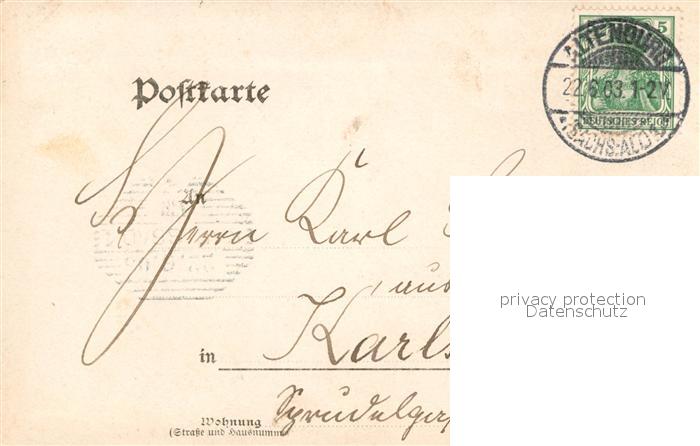 5
ALTENBURG
22.6.03. 1-2 V.
DEUTSCHES REICH
* (SACHS.-ALT.) *
Postkarte
An
Herrn Karl
aus
in Karls
Sprudelga
Wohnung
(Straße und Hausnumm
privacy protection
Datenschutz